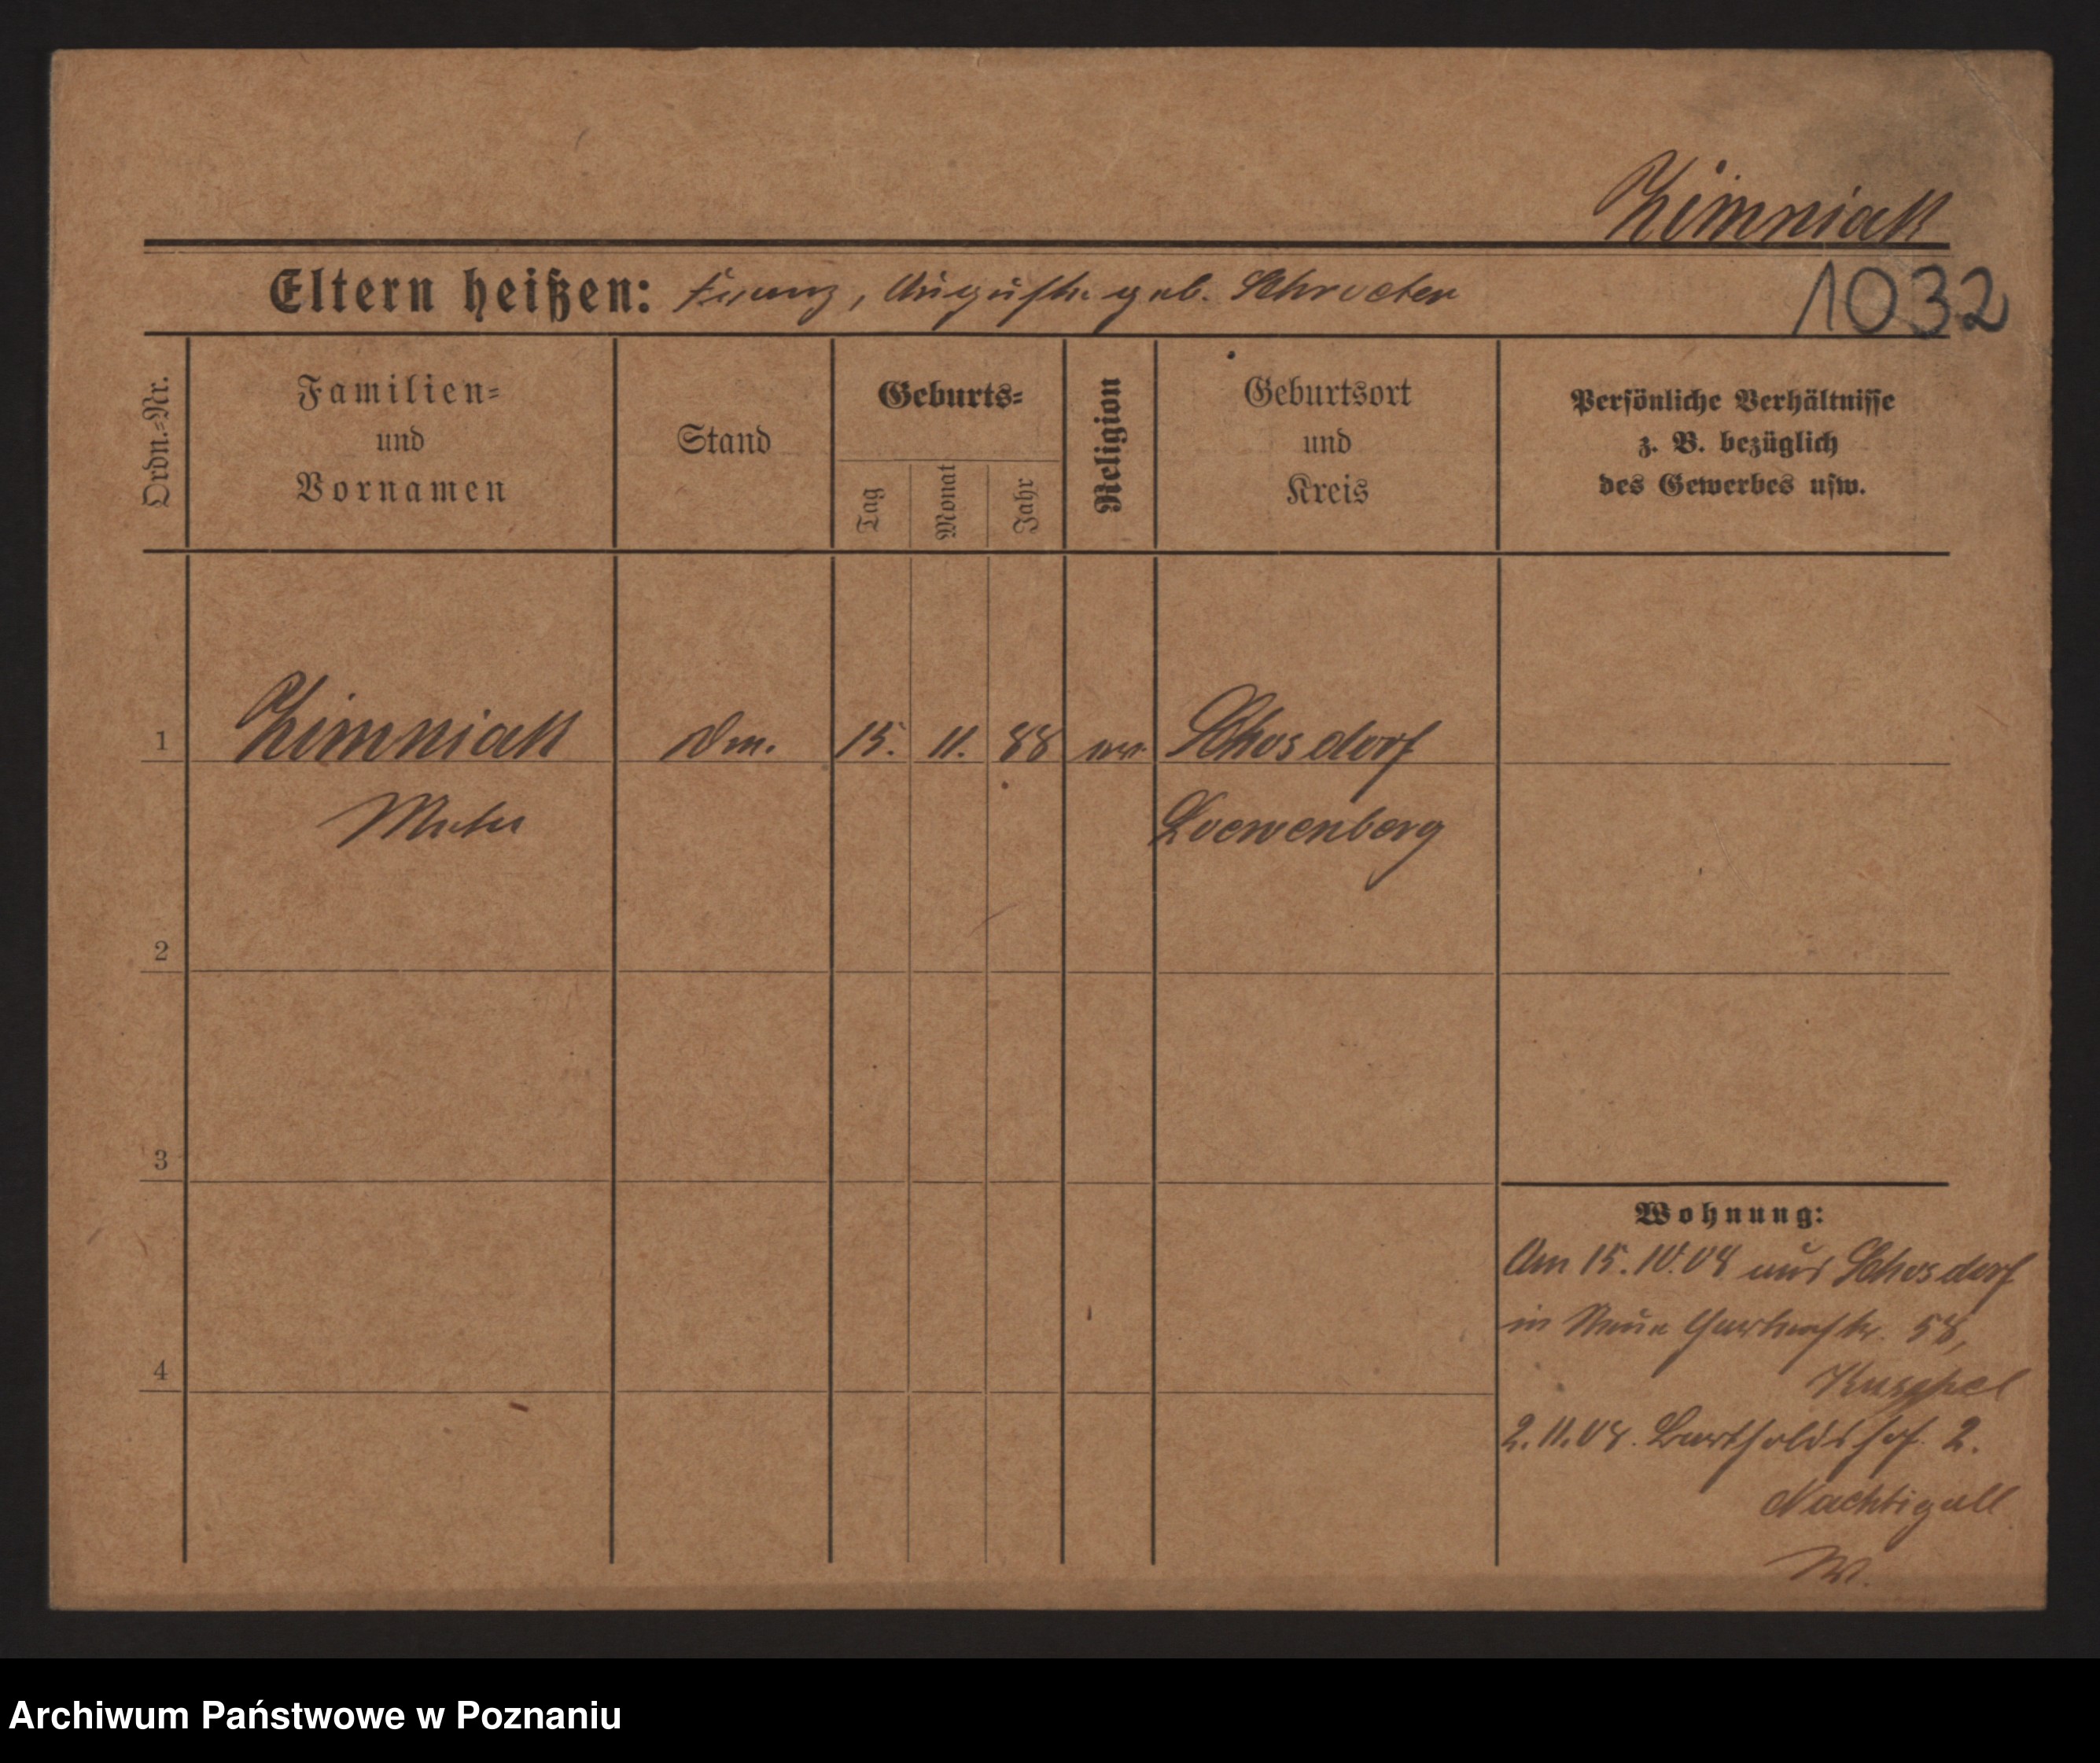 Zimniak
Eltern heißen: Franz, Auguste geb. Schroeter
1032
Ordn.-Nr.
Familien-
und
Vornamen
Stand
Geburts-
Tag
Monat
Jahr
Religion
Geburtsort
und
Kreis
Persönliche Verhältnisse
z. B. bezüglich
des Gewerbes usw.
1 Zimniak 15. 11. 88 Schosdorf
Loewenberg
2
3
4
Wohnung:
Am 15.10.08 aus Schosdorf
in Neue Gartenstr. 58,
2.11.08. Bartholdshof 2.
Nachtigall
W.
Archiwum Państwowe w Poznaniu